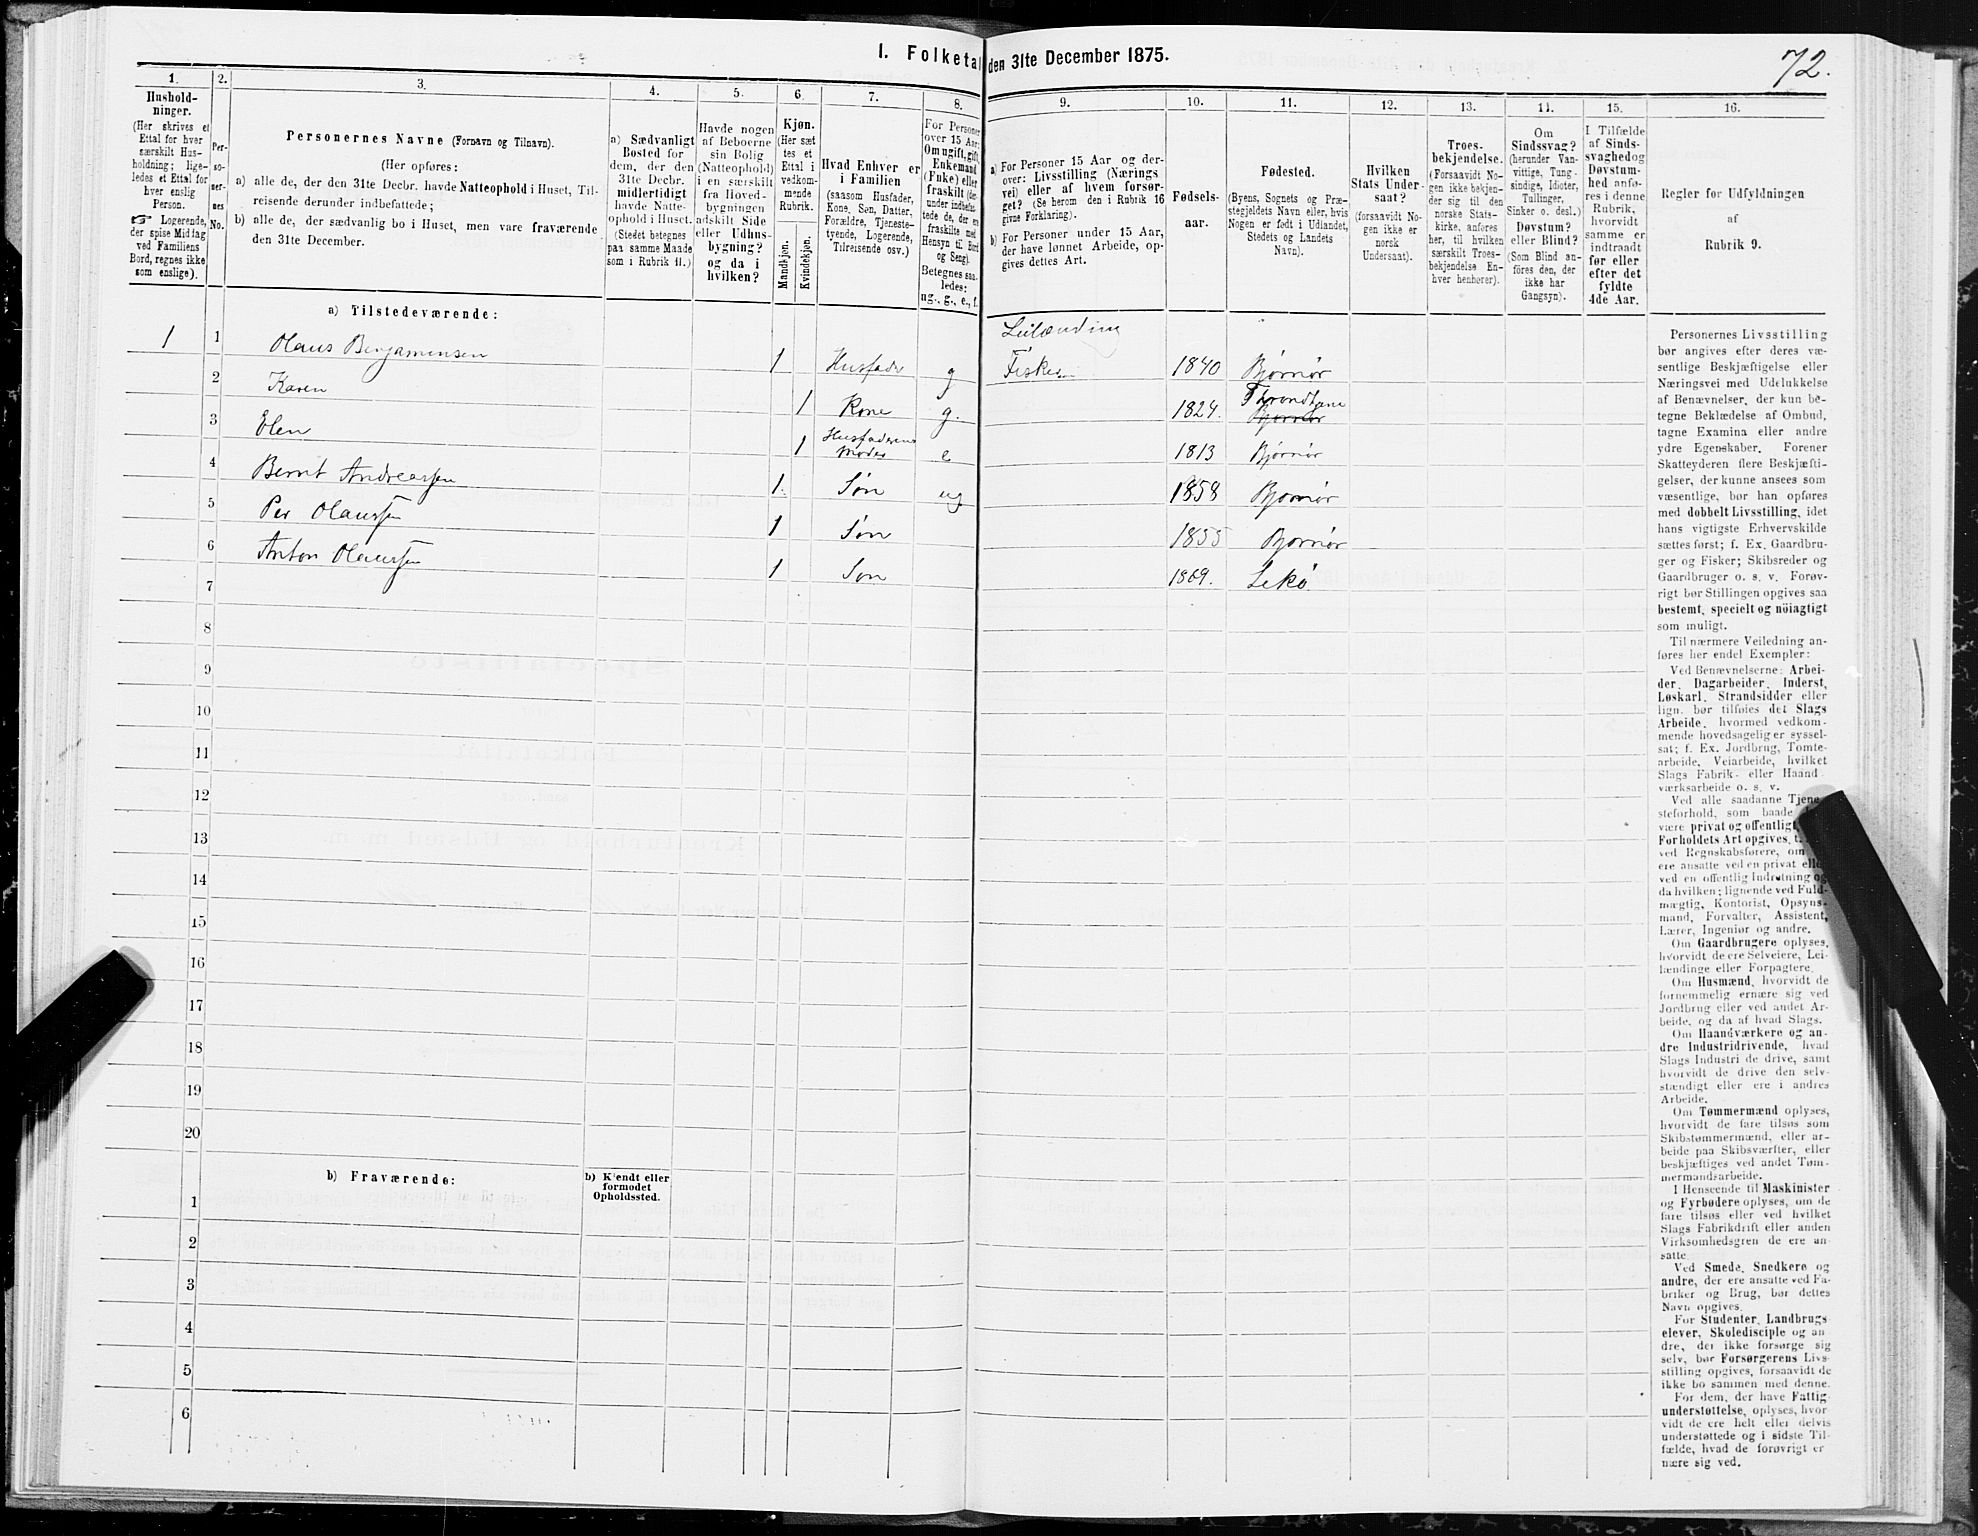 I. Folketal den 31te December 1875.
72.
1.
Hushold-
ninger.
(Her skrives et
Ettal for hver
særskilt Hus-
holdning; lige-
ledes et Ettal for
hver enslig
Person.
☞ Logerende,
der spise Middag
ved Familiens
Bord, regnes ikke
som enslige).
2.
Per-
so-
ner-
nes
No.
3.
Personernes Navne (Fornavn og Tilnavn).
(Her opføres:
a) alle de, der den 31te Decbr. havde Natteophold i Huset, Til-
reisende derunder indbefattede;
b) alle de, der sædvanlig bo i Huset, men vare fraværende
den 31te December.
4.
a) Sædvanligt
Bosted for
dem, der den
31te Decbr.
midlertidigt
havde Natte-
ophold i Huset.
(Stedet betegnes
paa samme Maade
som i Rubrik 11.)
5.
Havde nogen
af Beboerne
sin Bolig
(Natteophold)
i en særskilt
fra Hoved-
bygningen
adskilt Side
eller Udhus-
bygning?
og da i
hvilken?
6.
Kjøn.
(Her sæt-
tes et
Ettal i
vedkom-
mende
Rubrik.
Mandkjøn.
Kvindekjøn.
7.
Hvad Enhver er
i Familien
(saasom Husfader,
Kone, Søn, Datter,
Forældre, Tjeneste-
tyende, Logerende,
Tilreisende osv.)
8.
For Personer
over 15 Aar:
Om ugift, gift,
Enkemand
(Enke) eller
fraskilt (der-
under indbefat-
tede de, der ere
fraskilte med
Hensyn til Bord
og Seng).
Betegnes saa-
ledes:
ug., g., e., f.
9.
a) For Personer 15 Aar og der-
over: Livsstilling (Nærings-
vei) eller af hvem forsør-
get? (Se herom den i Rubrik 16
givne Forklaring).
b) For Personer under 15 Aar,
der have lønnet Arbeide, op-
gives dettes Art.
10.
Fødsels-
aar.
11.
Fødested.
(Byens, Sognets og Præ-
stegjeldets Navn eller, hvis
Nogen er født i Udlandet,
Stedets og Landets
Navn).
12.
Hvilken
Stats Under-
saat?
(forsaavidt No-
gen ikke er
norsk
Undersaat).
13.
Troes-
bekjendelse.
(Forsaavidt No-
gen ikke bekjen-
der sig til den
norske Stats-
kirke, anføres
her, til hvilken
særskilt Troes-
bekjendelse En-
hver henhører).
14.
Om
Sindssvag?
(herunder Van-
vittige, Tung-
sindige, Idioter,
Tullinger,
Sinker o. desl.)
Døvstum?
eller Blind?
(Som Blind an-
føres den, der
ikke har
Gangsyn).
15.
I Tilfælde
af Sinds-
svaghed og
Døvstum-
hed anfø-
res i denne
Rubrik,
hvorvidt
samme er
indtraadt
før eller
efter det
fyldte
4de Aar.
16.
Regler for Udfyldningen
af
Rubrik 9.
a) Tilstedeværende:
1 1 Olaus Benjaminsen 1 Husfader g Leilænding
Fisker 1840 Bjørnør
2 Karen 1 Kone g. 1824. Throndhjem
Bjørnør
3 Elen 1 Husfaderens
Moder e 1813 Bjørnør
4 Bernt Andreassen 1 Søn ug 1858 Bjørnør
5 Per Olaussen 1 Søn 1855 Bjørnør
6 Anton Olaussen 1 Søn 1869. Lekø
7
8
9
10
11
12
13
14
15
16
17
18
19
20
b) Fraværende:
b) Kjendt eller
formodet
Opholdssted.
1
2
3
4
5
6
Personernes Livsstilling
bør angives efter deres væ-
sentlige Beskjæftigelse eller
Næringsvei med Udelukkelse
af Benævnelser, der kun be-
tegne Beklædelse af Ombud,
tagne Examina eller andre
ydre Egenskaber. Forener
Skatteyderen flere Beskjæfti-
gelser, der kunne ansees som
væsentlige, bør han opføres
med dobbelt Livsstilling, idet
hans vigtigste Erhvervskilde
sættes først; f. Ex. Gaardbru-
ger og Fisker; Skibsreder og
Gaardbruger o. s. v. Forøv-
rigt bør Stillingen opgives saa
bestemt, specielt og nöiagtigt
som muligt.
Til nærmere Veiledning an-
føres her endel Exempler:
Ved Benævnelserne: Arbei-
der, Dagarbeider, Inderst,
Løskarl, Strandsidder eller
lign. bør tilføies det Slags
Arbeide, hvormed vedkom-
mende hovedsagelig er syssel-
sat; f. Ex. Jordbrug, Tomte-
arbeide, Veiarbeide, hvilket
Slags Fabrik- eller Haand-
værksarbeide o. s. v.
Ved alle saadanne Tjene-
steforhold, som baade
være privat og offentligt,
Forholdets Art opgives,
ved Regnskabsførere, om
ere ansatte ved en privat eller
ved en offentlig Indretning og
da hvilken; lignende ved Fuld-
mægtig, Kontorist, Opsyns-
mand, Forvalter, Assistent,
Lærer, Ingeniør og andre.
Om Gaardbrugere oplyses,
hvorvidt de ere Selveiere, Lei-
lændinge eller Forpagtere.
Om Husmænd, hvorvidt de
fornemmelig ernære sig ved
Jordbrug eller ved andet Ar-
beide, og da af hvad Slags.
Om Haandværkere og an-
dre Industridrivende, hvad
Slags Industri de drive, samt
hvorvidt de drive den selv-
stændigt eller ere i andres
Arbeide.
Om Tømmermænd oplyses,
hvorvidt de fare tilsøs som
Skibstømmermænd, eller ar-
beide paa Skibsværfter, eller
beskjæftiges ved andet Tøm-
mermandsarbeide.
I Henseende til Maskinister
og Fyrbødere oplyses, om de
fare tilsøs eller ved hvilket
Slags Fabrikdrift eller anden
Virksomhedsgren de ere an-
satte.
Ved Smede, Snedkere og
andre, der ere ansatte ved Fa-
briker og Brug, bør dettes
Navn opgives.
For Studenter, Landbrugs-
elever, Skoledisciple og an-
dre, der ikke forsørge sig
selv, bør Forsørgerens Livs-
stilling opgives, forsaavidt de
ikke bo sammen med denne.
For dem, der have Fattig-
understøttelse, oplyses, hvor-
vidt de ere helt eller delvis
understøttede og i sidste Til-
fælde, hvad de forøvrigt er-
nære sig ved.